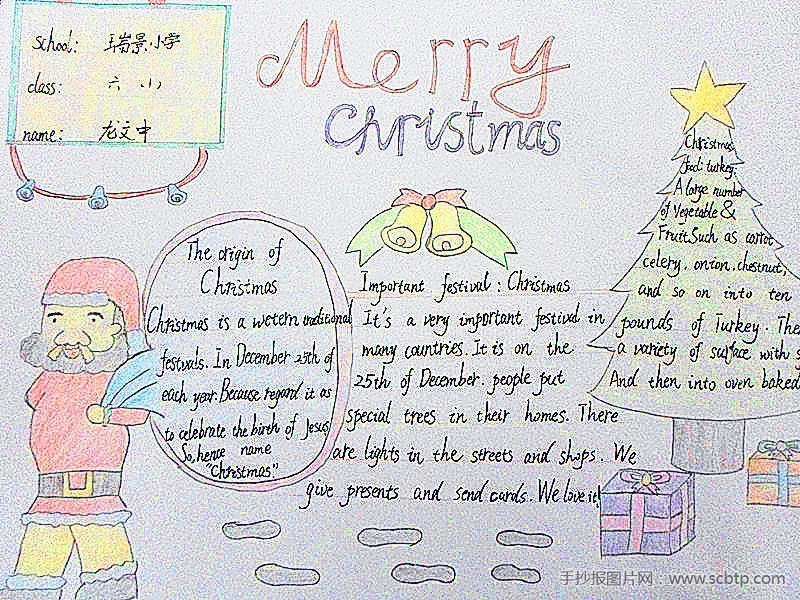 school: 瑞景小学
class: 六 (1)
name: 龙文中
Merry
Christmas
The origin of
Christmas
Christmas is a wetern traditional
festivals. In December 25th of
each year. Because regard it as
to celebrate the birth of Jesus
So, hence name
"Christmas"
Important festival : Christmas
It's a very important festival in
many countries. It is on the
25th of December. people put
special trees in their homes. There
are lights in the streets and shops. We
give presents and send cards. We love it!
Christmas
food: turkey.
A large number
of Vegetable &
Fruit. Such as carrot
celery, onion, chestnut,
and so on into ten
pounds of Turkey. The
a variety of surface with s
And then into oven baked
手抄报图片网:www.scbtp.com